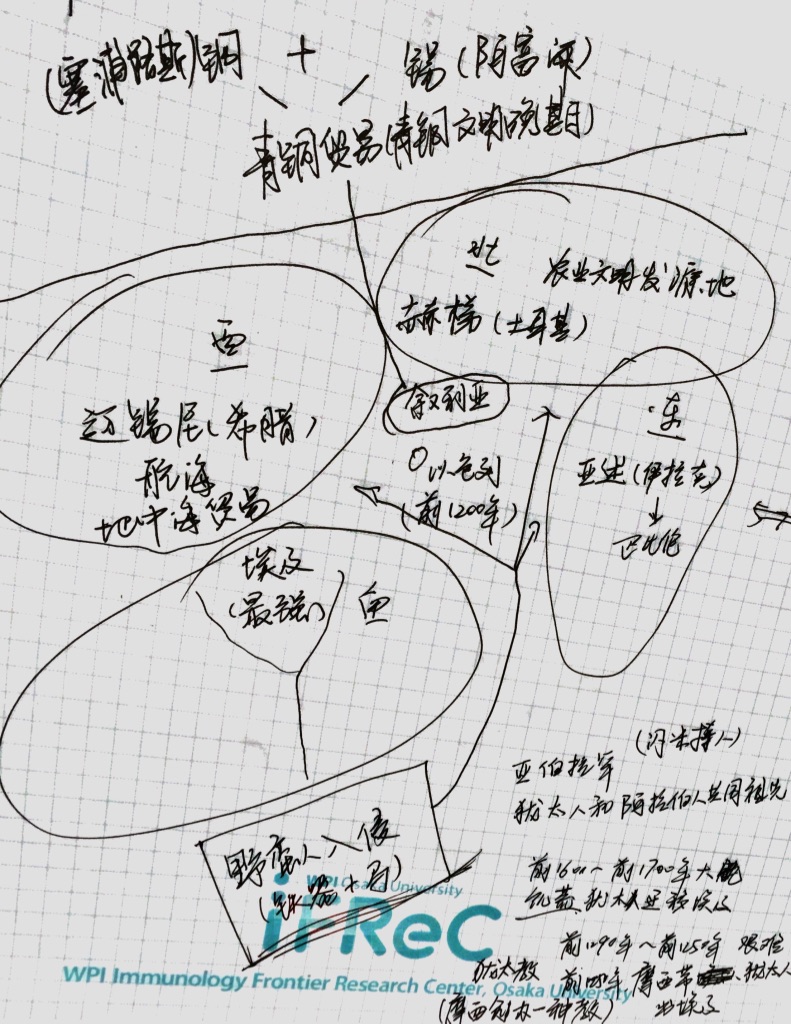 (塞浦路斯)铜 + 锡(阿富汗)
青铜贸易(青铜文明晚期)
北 农业文明发源地
赫梯(土耳其)
西
迈锡尼(希腊)
航海
地中海贸易
叙利亚
以色列
(前1200年)
东
亚述(伊拉克)
巴比伦
埃及
(最强)
南
野蛮人入侵
(铁器+马)
(闪米择人)
亚伯拉罕
犹太人和阿拉伯人共同祖先
前1600~前1700年大
饥荒 犹太人迁移埃及
前1290年~前1250年 艰难
犹太教 前 年,摩西带 犹太人
(摩西创办一神教) 出埃及
WPI Osaka University
iFReC
WPI Immunology Frontier Research Center, Osaka University